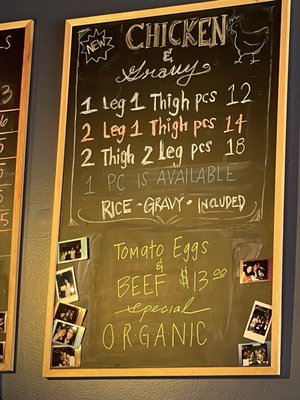 NEW
CHICKEN
&
Gravy
1 Leg 1 Thigh pcs 12
2 Leg 1 Thigh pcs 14
2 Thigh 2 Leg pcs 18
1 PC IS AVAILABLE
RICE - GRAVY - INCLUDED
Tomato Eggs
&
BEEF $13.00
special
ORGANIC